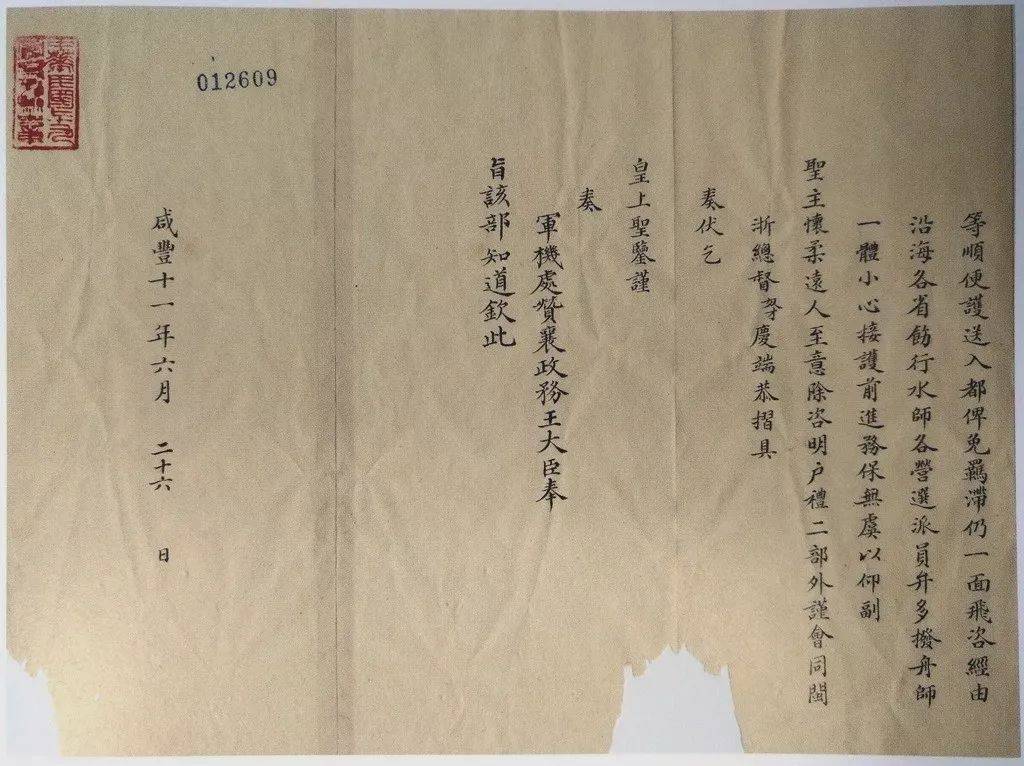 等順便護送入都俾免羈滯仍一面飛咨經由
沿海各省飭行水師各營選派員弁多撥舟師
一體小心接護前進務保無虞以仰副
聖主懷柔遠人至意除咨明户禮二部外謹會同閩
浙總督臣慶端恭摺具
奏伏乞
皇上聖鑒謹
奏
軍機處贊襄政務王大臣奉
旨該部知道欽此
咸豐十一年六月 二十六 日
012609